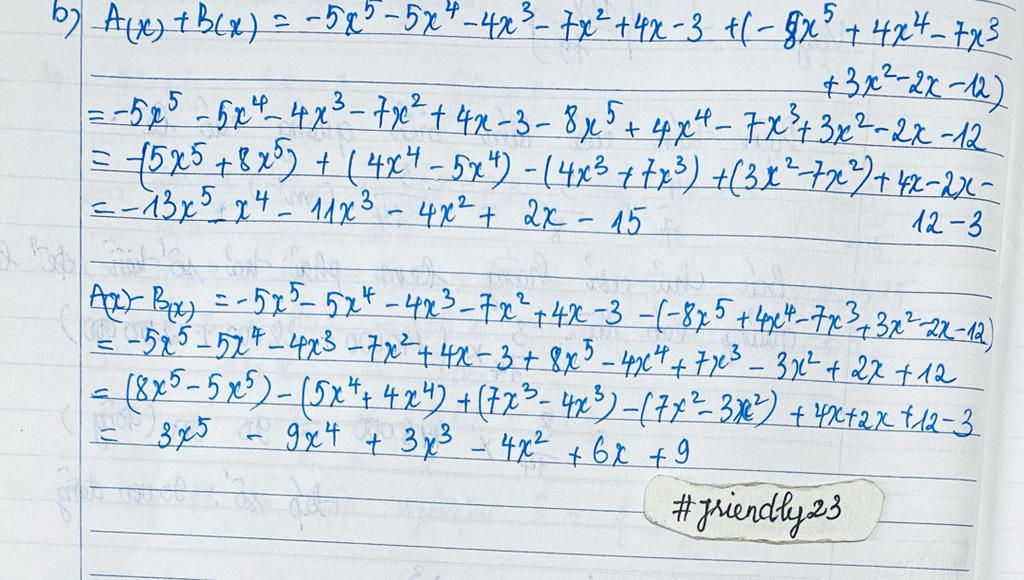 b) A(x) + B(x) = -5x⁵ - 5x⁴ - 4x³ - 7x² + 4x - 3 + (-8x⁵ + 4x⁴ - 7x³
+ 3x² - 2x - 12)
= -5x⁵ - 5x⁴ - 4x³ - 7x² + 4x - 3 - 8x⁵ + 4x⁴ - 7x³ + 3x² - 2x - 12
= -(5x⁵ + 8x⁵) + (4x⁴ - 5x⁴) - (4x³ + 7x³) + (3x² - 7x²) + 4x - 2x -
12 - 3
= -13x⁵ - x⁴ - 11x³ - 4x² + 2x - 15
A(x) - B(x) = -5x⁵ - 5x⁴ - 4x³ - 7x² + 4x - 3 - (-8x⁵ + 4x⁴ - 7x³ + 3x² - 2x - 12)
= -5x⁵ - 5x⁴ - 4x³ - 7x² + 4x - 3 + 8x⁵ - 4x⁴ + 7x³ - 3x² + 2x + 12
= (8x⁵ - 5x⁵) - (5x⁴ + 4x⁴) + (7x³ - 4x³) - (7x² - 3x²) + 4x + 2x + 12 - 3
= 3x⁵ - 9x⁴ + 3x³ - 4x² + 6x + 9
#friendly23